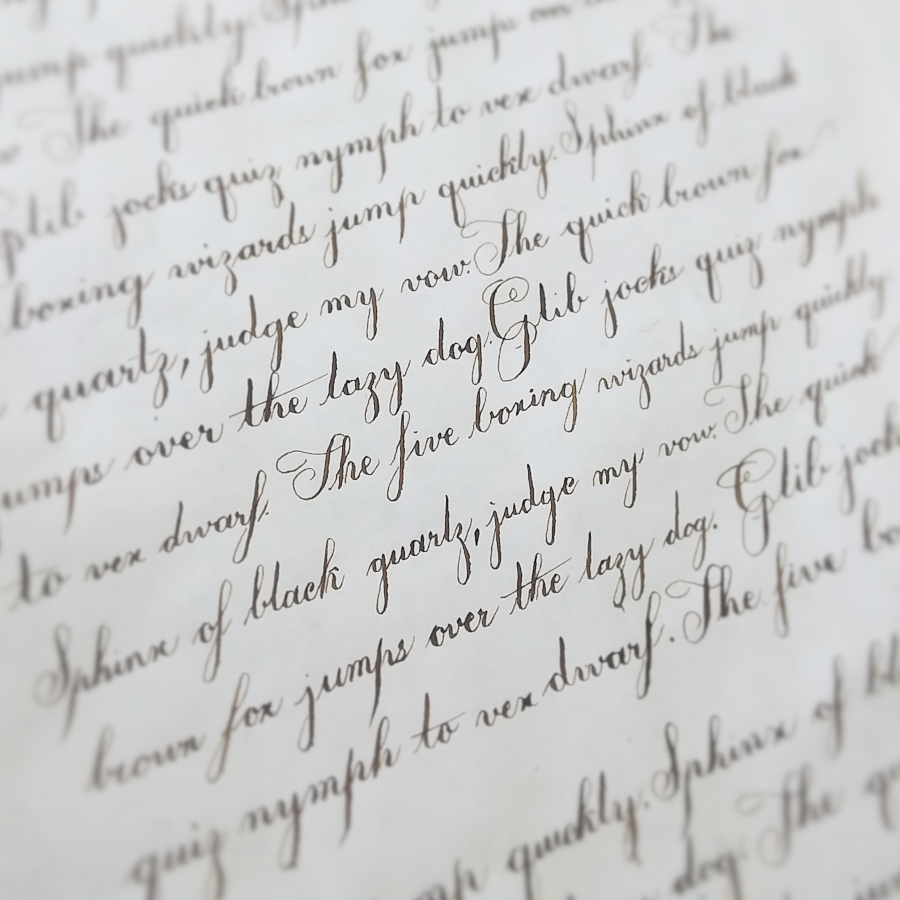 jump quickly. Sphinx
The quick brown fox jumps
Glib jocks quiz nymph to vex dwarf. The
boxing wizards jump quickly. Sphinx of black
quartz, judge my vow. The quick brown fox
jumps over the lazy dog. Glib jocks quiz nymph
to vex dwarf. The five boxing wizards jump quickly
Sphinx of black quartz, judge my vow. The quick
brown fox jumps over the lazy dog. Glib jock
quiz nymph to vex dwarf. The five bo
mp quickly. Sphinx of bl
dog. The qu